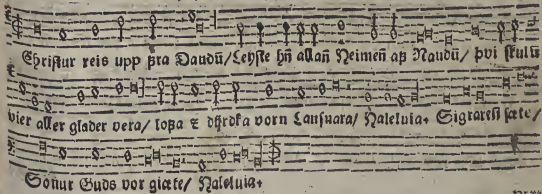 Christur reis upp fra Daudū/ Leyste hn̄ allan̄ Heimen̄ af Naudū/ þui skulū
vier aller glader vera/ lofa & dyrdka vorn Lausnara/ Haleluia. Sigraren̄ sæte/
Sonur Guds vor giæte/ Haleluia.